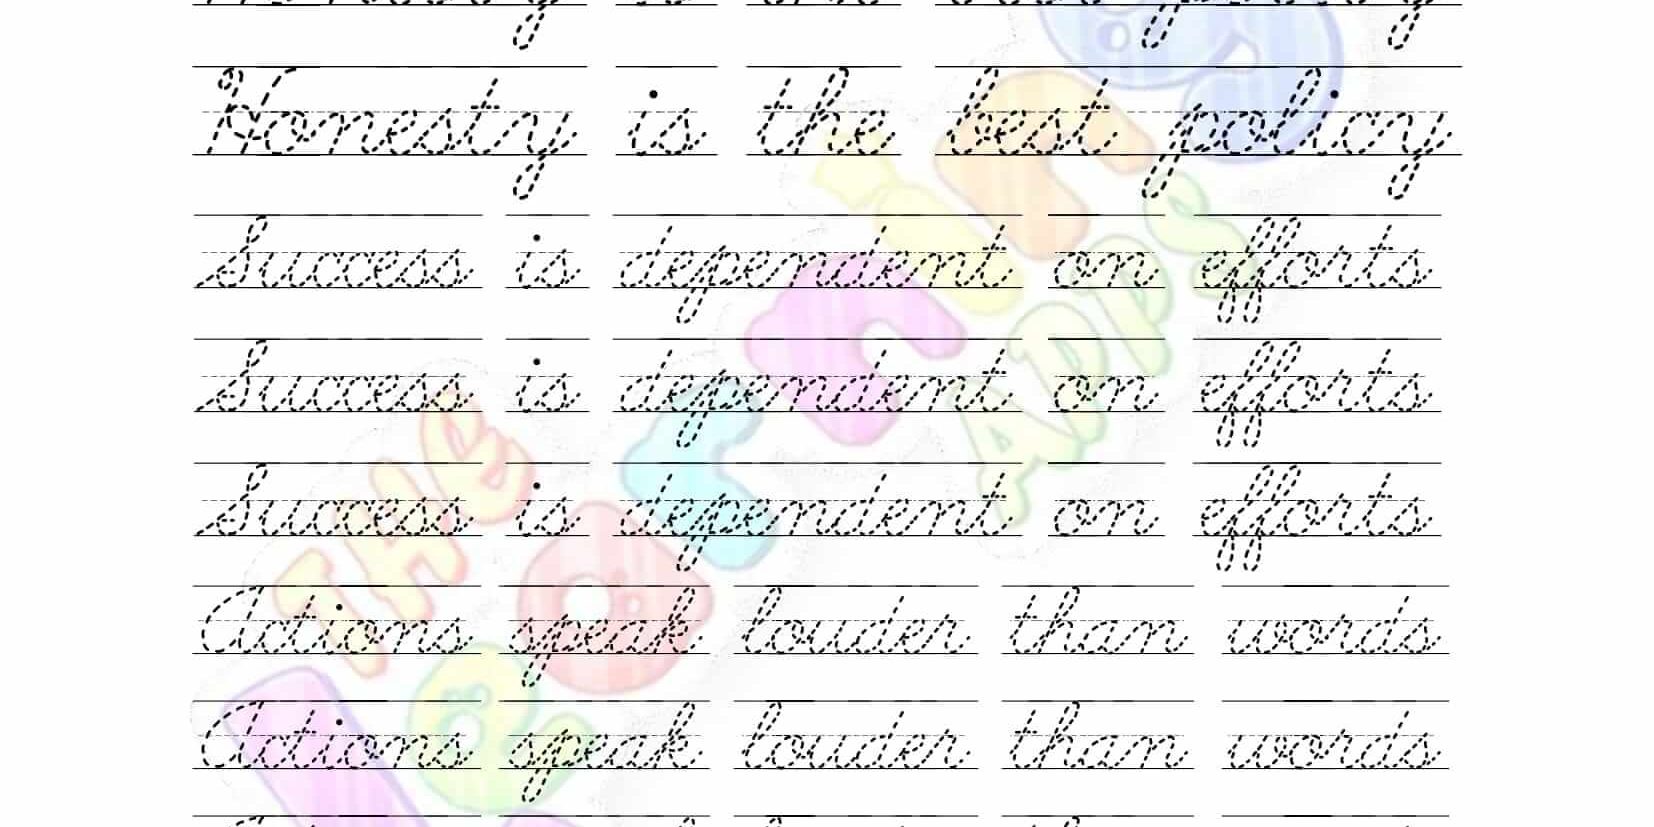 Honesty is the best policy
Success is dependent on efforts
Success is dependent on efforts
Success is dependent on efforts
Actions speak louder than words
Actions speak louder than words